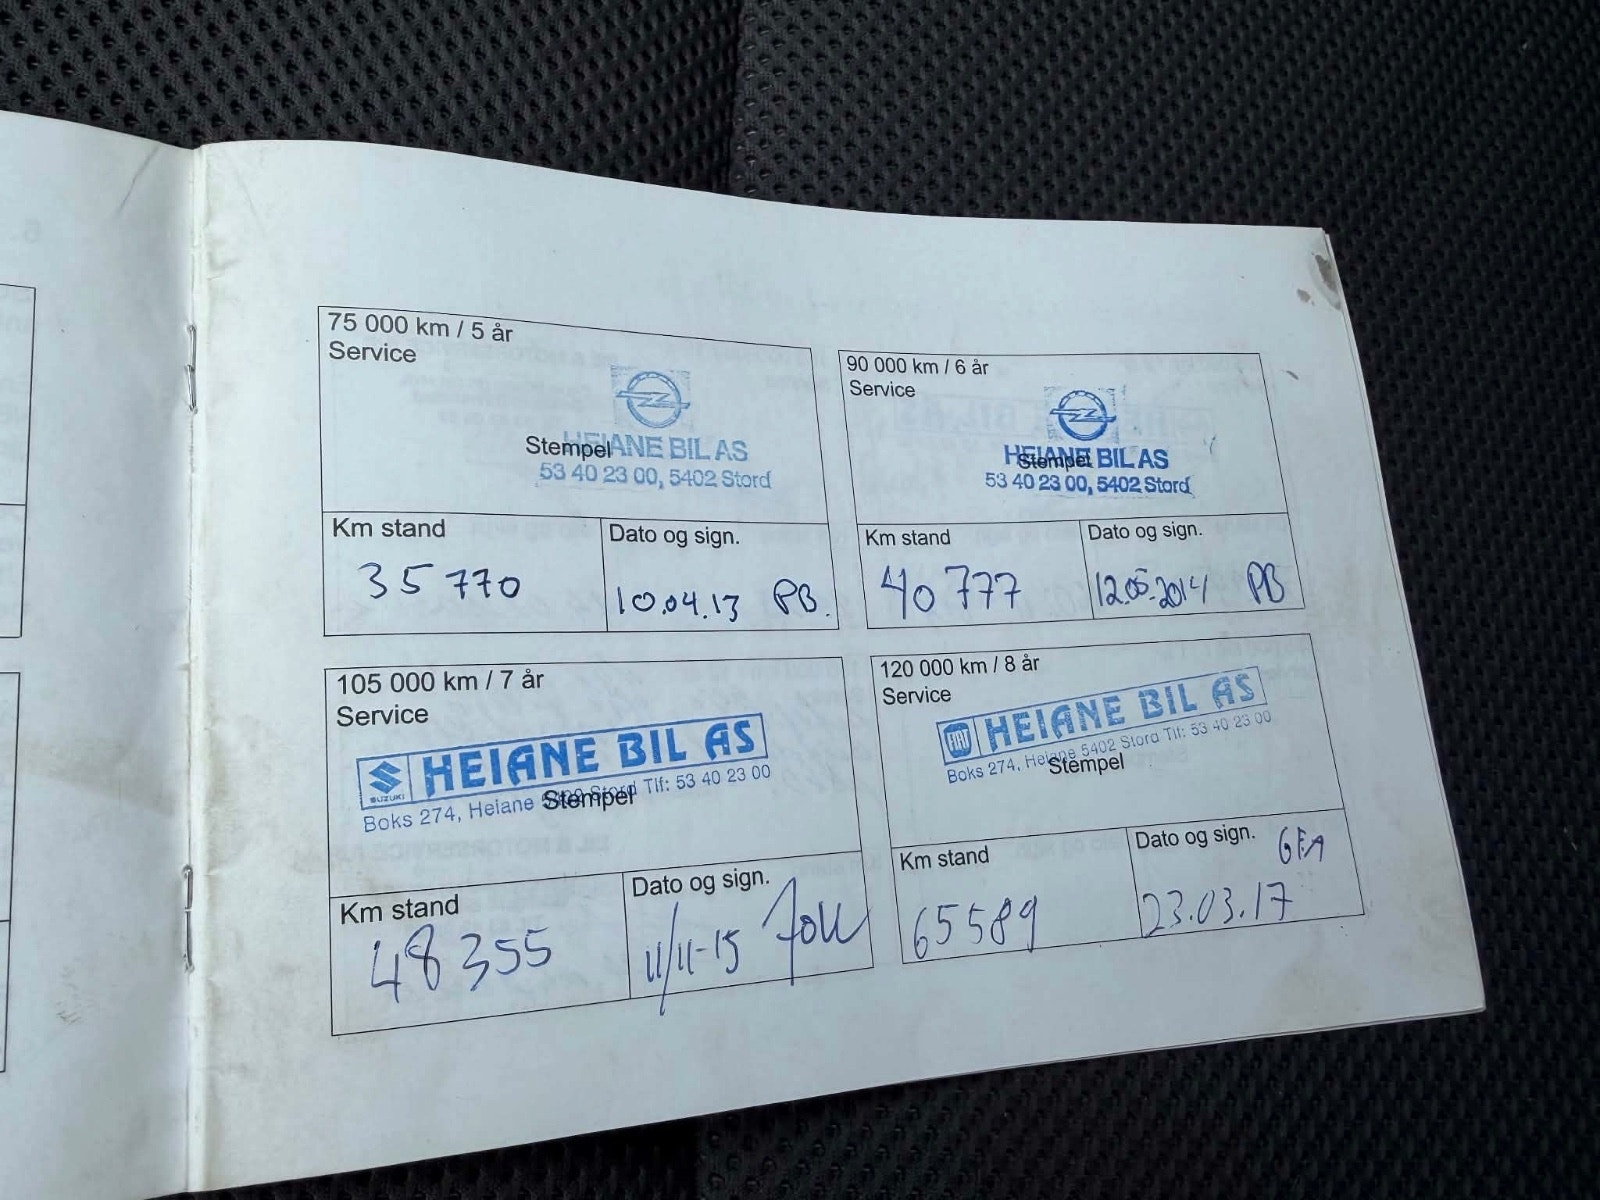 75 000 km / 5 år
Service
Stempel
HEIANE BIL AS
53 40 23 00, 5402 Stord
Km stand
Dato og sign.
35 770
10.04.13 PB.
90 000 km / 6 år
Service
HEIANE BIL AS
Stempel
53 40 23 00, 5402 Stord
Km stand
Dato og sign.
40 777
12.05.2014 PB
105 000 km / 7 år
Service
SUZUKI
HEIANE BIL AS
Boks 274, Heiane 5402 Stord Tlf: 53 40 23 00
Stempel
Km stand
Dato og sign.
48355
11/11-15
120 000 km / 8 år
Service
FIAT
HEIANE BIL AS
Boks 274, Heiane 5402 Stord Tlf: 53 40 23 00
Stempel
Km stand
Dato og sign.
GFA
65589
23.03.17